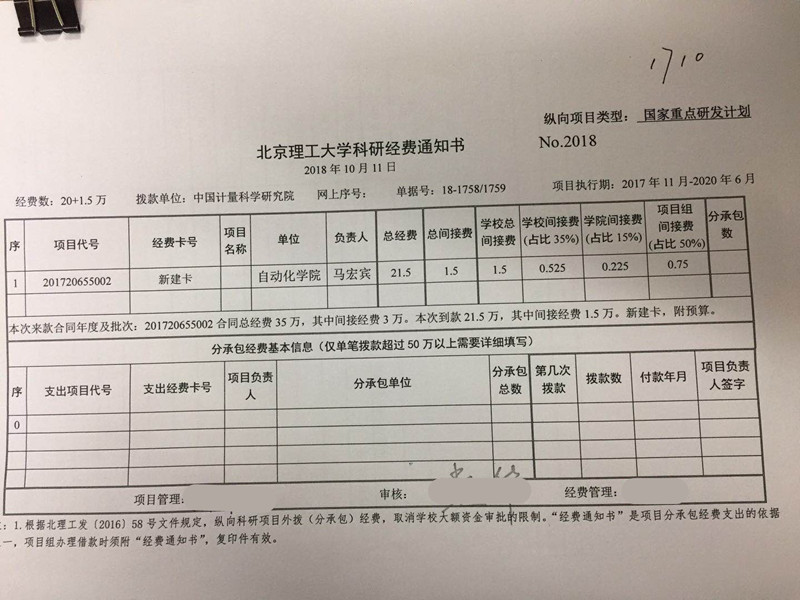 1710
纵向项目类型: 国家重点研发计划
北京理工大学科研经费通知书
No.2018
2018年10月11日
经费数: 20+1.5万 拨款单位: 中国计量科学研究院 网上序号: 单据号: 18-1758/1759 项目执行期: 2017年11月-2020年6月
序 项目代号 经费卡号 项目名称 单位 负责人 总经费 总间接费 学校总间接费 学校间接费(占比35%) 学院间接费(占比15%) 项目组间接费(占比50%) 分承包数
1 201720655002 新建卡 自动化学院 马宏宾 21.5 1.5 1.5 0.525 0.225 0.75
本次来款合同年度及批次: 201720655002合同总经费35万，其中间接经费3万。本次到款21.5万，其中间接经费1.5万。新建卡，附预算。
分承包经费基本信息（仅单笔拨款超过50万以上需要详细填写）
序 支出项目代号 支出经费卡号 项目负责人 分承包单位 分承包总数 第几次拨款 拨款数 付款年月 项目负责人签字
0
项目管理: 审核: 经费管理:
: 1.根据北理工发〔2016〕58号文件规定，纵向科研项目外拨（分承包）经费，取消学校大额资金审批的限制。“经费通知书”是项目分承包经费支出的依据
一，项目组办理借款时须附“经费通知书”，复印件有效。